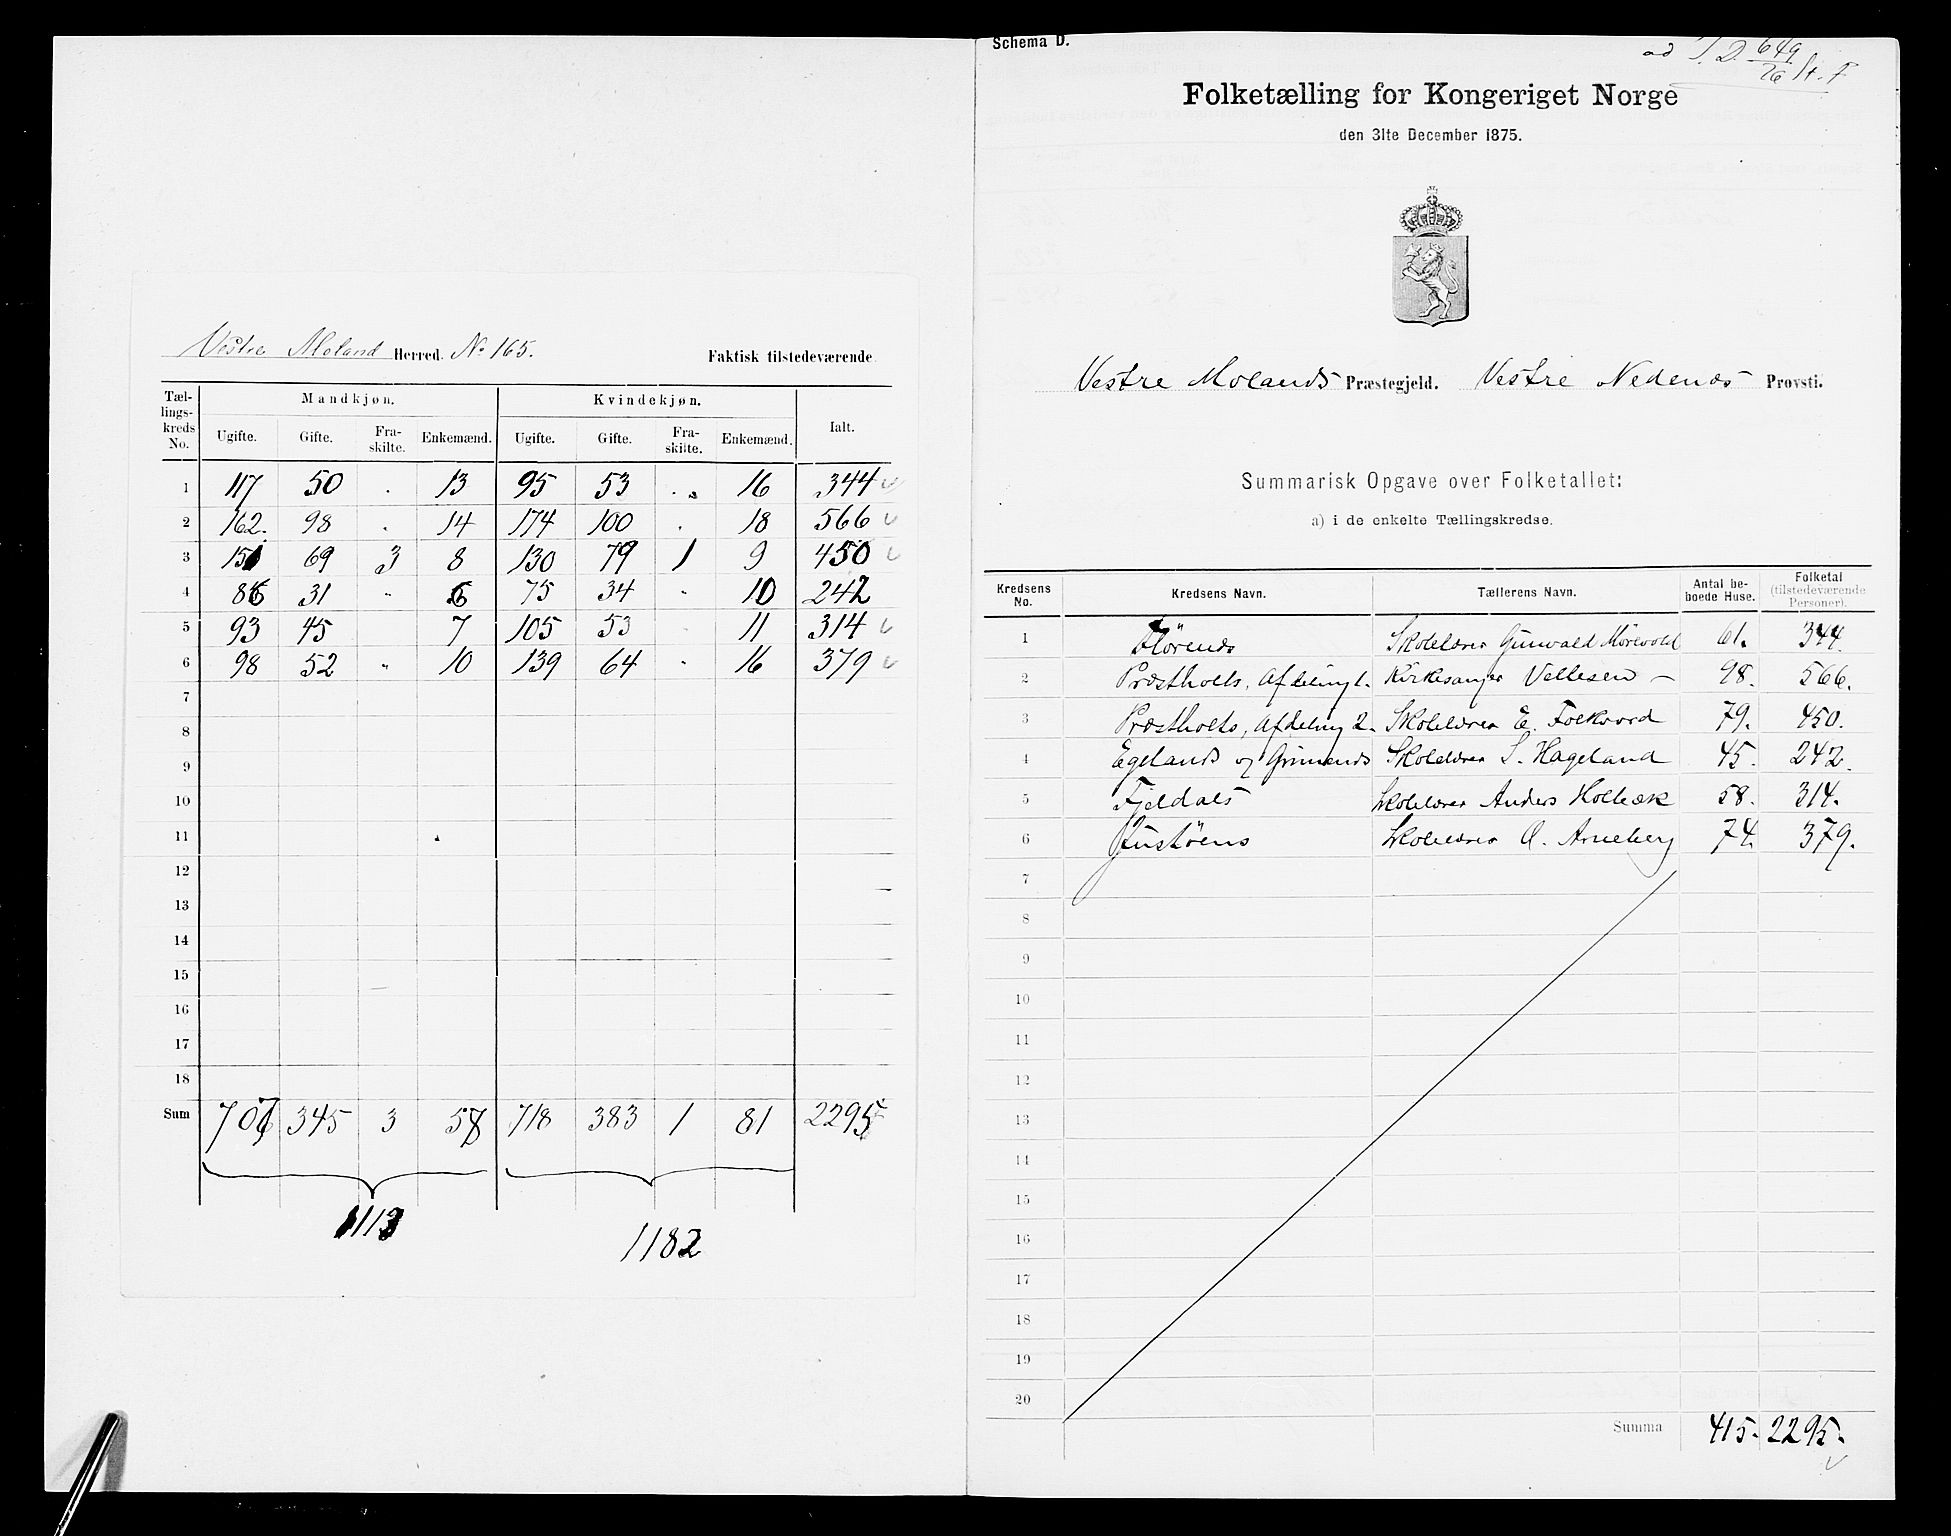 Vestre Moland Herred. No 165. Faktisk tilstedeværende
Tællingskreds No. Mandkjøn. Kvindekjøn. Ialt.
Ugifte. Gifte. Fraskilte. Enkemænd. Ugifte. Gifte. Fraskilte. Enkemænd.
1 117 50 . 13 95 53 . „ 16 344 v
2 162. 98 . 14 174 100 . 18 566 v
3 151 69 3 8 130 79 1 9 450 v
4 86 31 „ 6 75 34 „ 10 242
5 93 45 7 105 53 11 314 v
6 98 52 „ 10 139 64 „ 16 379 v
7
8
9
10
11
12
13
14
15
16
17
18
Sum 707 345 3 58 718 383 1 81 2295
1113
1182
Schema D.
ad 649/76 St. F
Folketælling for Kongeriget Norge
den 31te December 1875.
Vestre Molands Præstegjeld. Vestre Nedenæs Provsti.
Summarisk Opgave over Folketallet:
a) i de enkelte Tællingskredse.
Kredsens No. Kredsens Navn. Tællerens Navn. Antal beboede Huse. Folketal (tilstedeværende Personer).
1 Flørenæs Skolelærer Gunvald 61. 344.
2 Præstholts, Afdeling 1. Kirkesanger Vellesen – 98. 566.
3 Præstholts, Afdeling 2. Skolelærer E. Folkvord 79. 450.
4 Egelands og Grimenæs Skolelærer S. Hageland 45. 242.
5 Fjeldals Skolelærer Anders Holbæk 58. 314.
6 Justøens Skolelærer O. Arneberg 74. 379.
7
8
9
10
11
12
13
14
15
16
17
18
19
20
Summa 415. 2295.
v